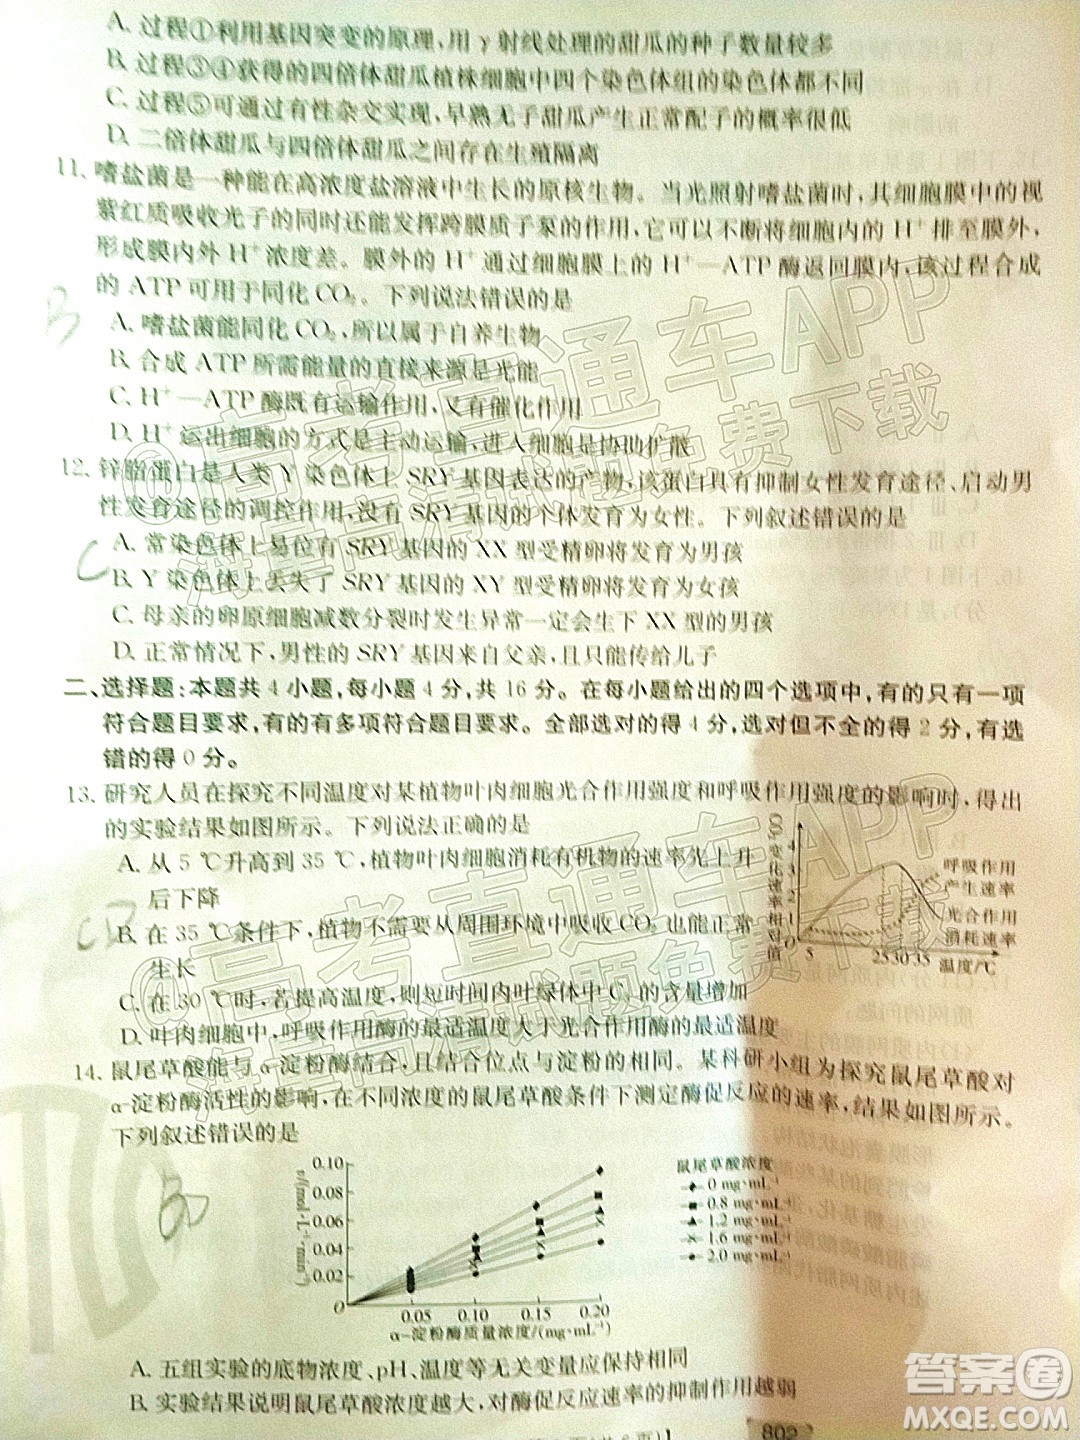 A. 过程①利用基因突变的原理,用 γ 射线处理的甜瓜的种子数量较多
B. 过程③④获得的四倍体甜瓜植株细胞中四个染色体组的染色体都不同
C. 过程⑤可通过有性杂交实现,早熟无子甜瓜产生正常配子的概率很低
D. 二倍体甜瓜与四倍体甜瓜之间存在生殖隔离
11. 嗜盐菌是一种能在高浓度盐溶液中生长的原核生物。当光照射嗜盐菌时,其细胞膜中的视
紫红质吸收光子的同时还能发挥跨膜质子泵的作用,它可以不断将细胞内的 H⁺ 排至膜外,
形成膜内外 H⁺ 浓度差。膜外的 H⁺ 通过细胞膜上的 H⁺—ATP 酶返回膜内,该过程合成
的 ATP 可用于同化 CO₂。下列说法错误的是
B
A. 嗜盐菌能同化 CO₂,所以属于自养生物
B. 合成 ATP 所需能量的直接来源是光能
C. H⁺—ATP 酶既有运输作用,又有催化作用
D. H⁺ 运出细胞的方式是主动运输,进入细胞是协助扩散
12. 锌脂蛋白是人类 Y 染色体上 SRY 基因表达的产物,该蛋白具有抑制女性发育途径、启动男
性发育途径的调控作用,没有 SRY 基因的个体发育为女性。下列叙述错误的是
C
A. 常染色体上易位有 SRY 基因的 XX 型受精卵将发育为男孩
B. Y 染色体上丢失了 SRY 基因的 XY 型受精卵将发育为女孩
C. 母亲的卵原细胞减数分裂时发生异常一定会生下 XX 型的男孩
D. 正常情况下,男性的 SRY 基因来自父亲,且只能传给儿子
二、选择题:本题共 4 小题,每小题 4 分,共 16 分。在每小题给出的四个选项中,有的只有一项
符合题目要求,有的有多项符合题目要求。全部选对的得 4 分,选对但不全的得 2 分,有选
错的得 0 分。
13. 研究人员在探究不同温度对某植物叶肉细胞光合作用强度和呼吸作用强度的影响时,得出
的实验结果如图所示。下列说法正确的是
A. 从 5 ℃升高到 35 ℃,植物叶肉细胞消耗有机物的速率先上升
后下降
B. 在 35 ℃条件下,植物不需要从周围环境中吸收 CO₂ 也能正常
生长
C. 在 30 ℃时,若提高温度,则短时间内叶绿体中 C₃ 的含量增加
D. 叶肉细胞中,呼吸作用酶的最适温度大于光合作用酶的最适温度
CO₂变化速率相对值
4
3
2
1
O
5 25 30 35 温度/℃
呼吸作用
产生速率
光合作用
消耗速率
14. 鼠尾草酸能与 α-淀粉酶结合,且结合位点与淀粉的相同。某科研小组为探究鼠尾草酸对
α-淀粉酶活性的影响,在不同浓度的鼠尾草酸条件下测定酶促反应的速率,结果如图所示。
下列叙述错误的是
v/(mol·L⁻¹·min⁻¹)
0.10
0.08
0.06
0.04
0.02
O
0.05 0.10 0.15 0.20
α-淀粉酶质量浓度/(mg·mL⁻¹)
鼠尾草酸浓度
0 mg·mL⁻¹
0.8 mg·mL⁻¹
1.2 mg·mL⁻¹
1.6 mg·mL⁻¹
2.0 mg·mL⁻¹
A. 五组实验的底物浓度、pH、温度等无关变量应保持相同
B. 实验结果说明鼠尾草酸浓度越大,对酶促反应速率的抑制作用越弱
高考直通车APP
海量高清试题免费下载
高考直通车APP
海量高清试题免费下载
答案圈
MXQE.COM